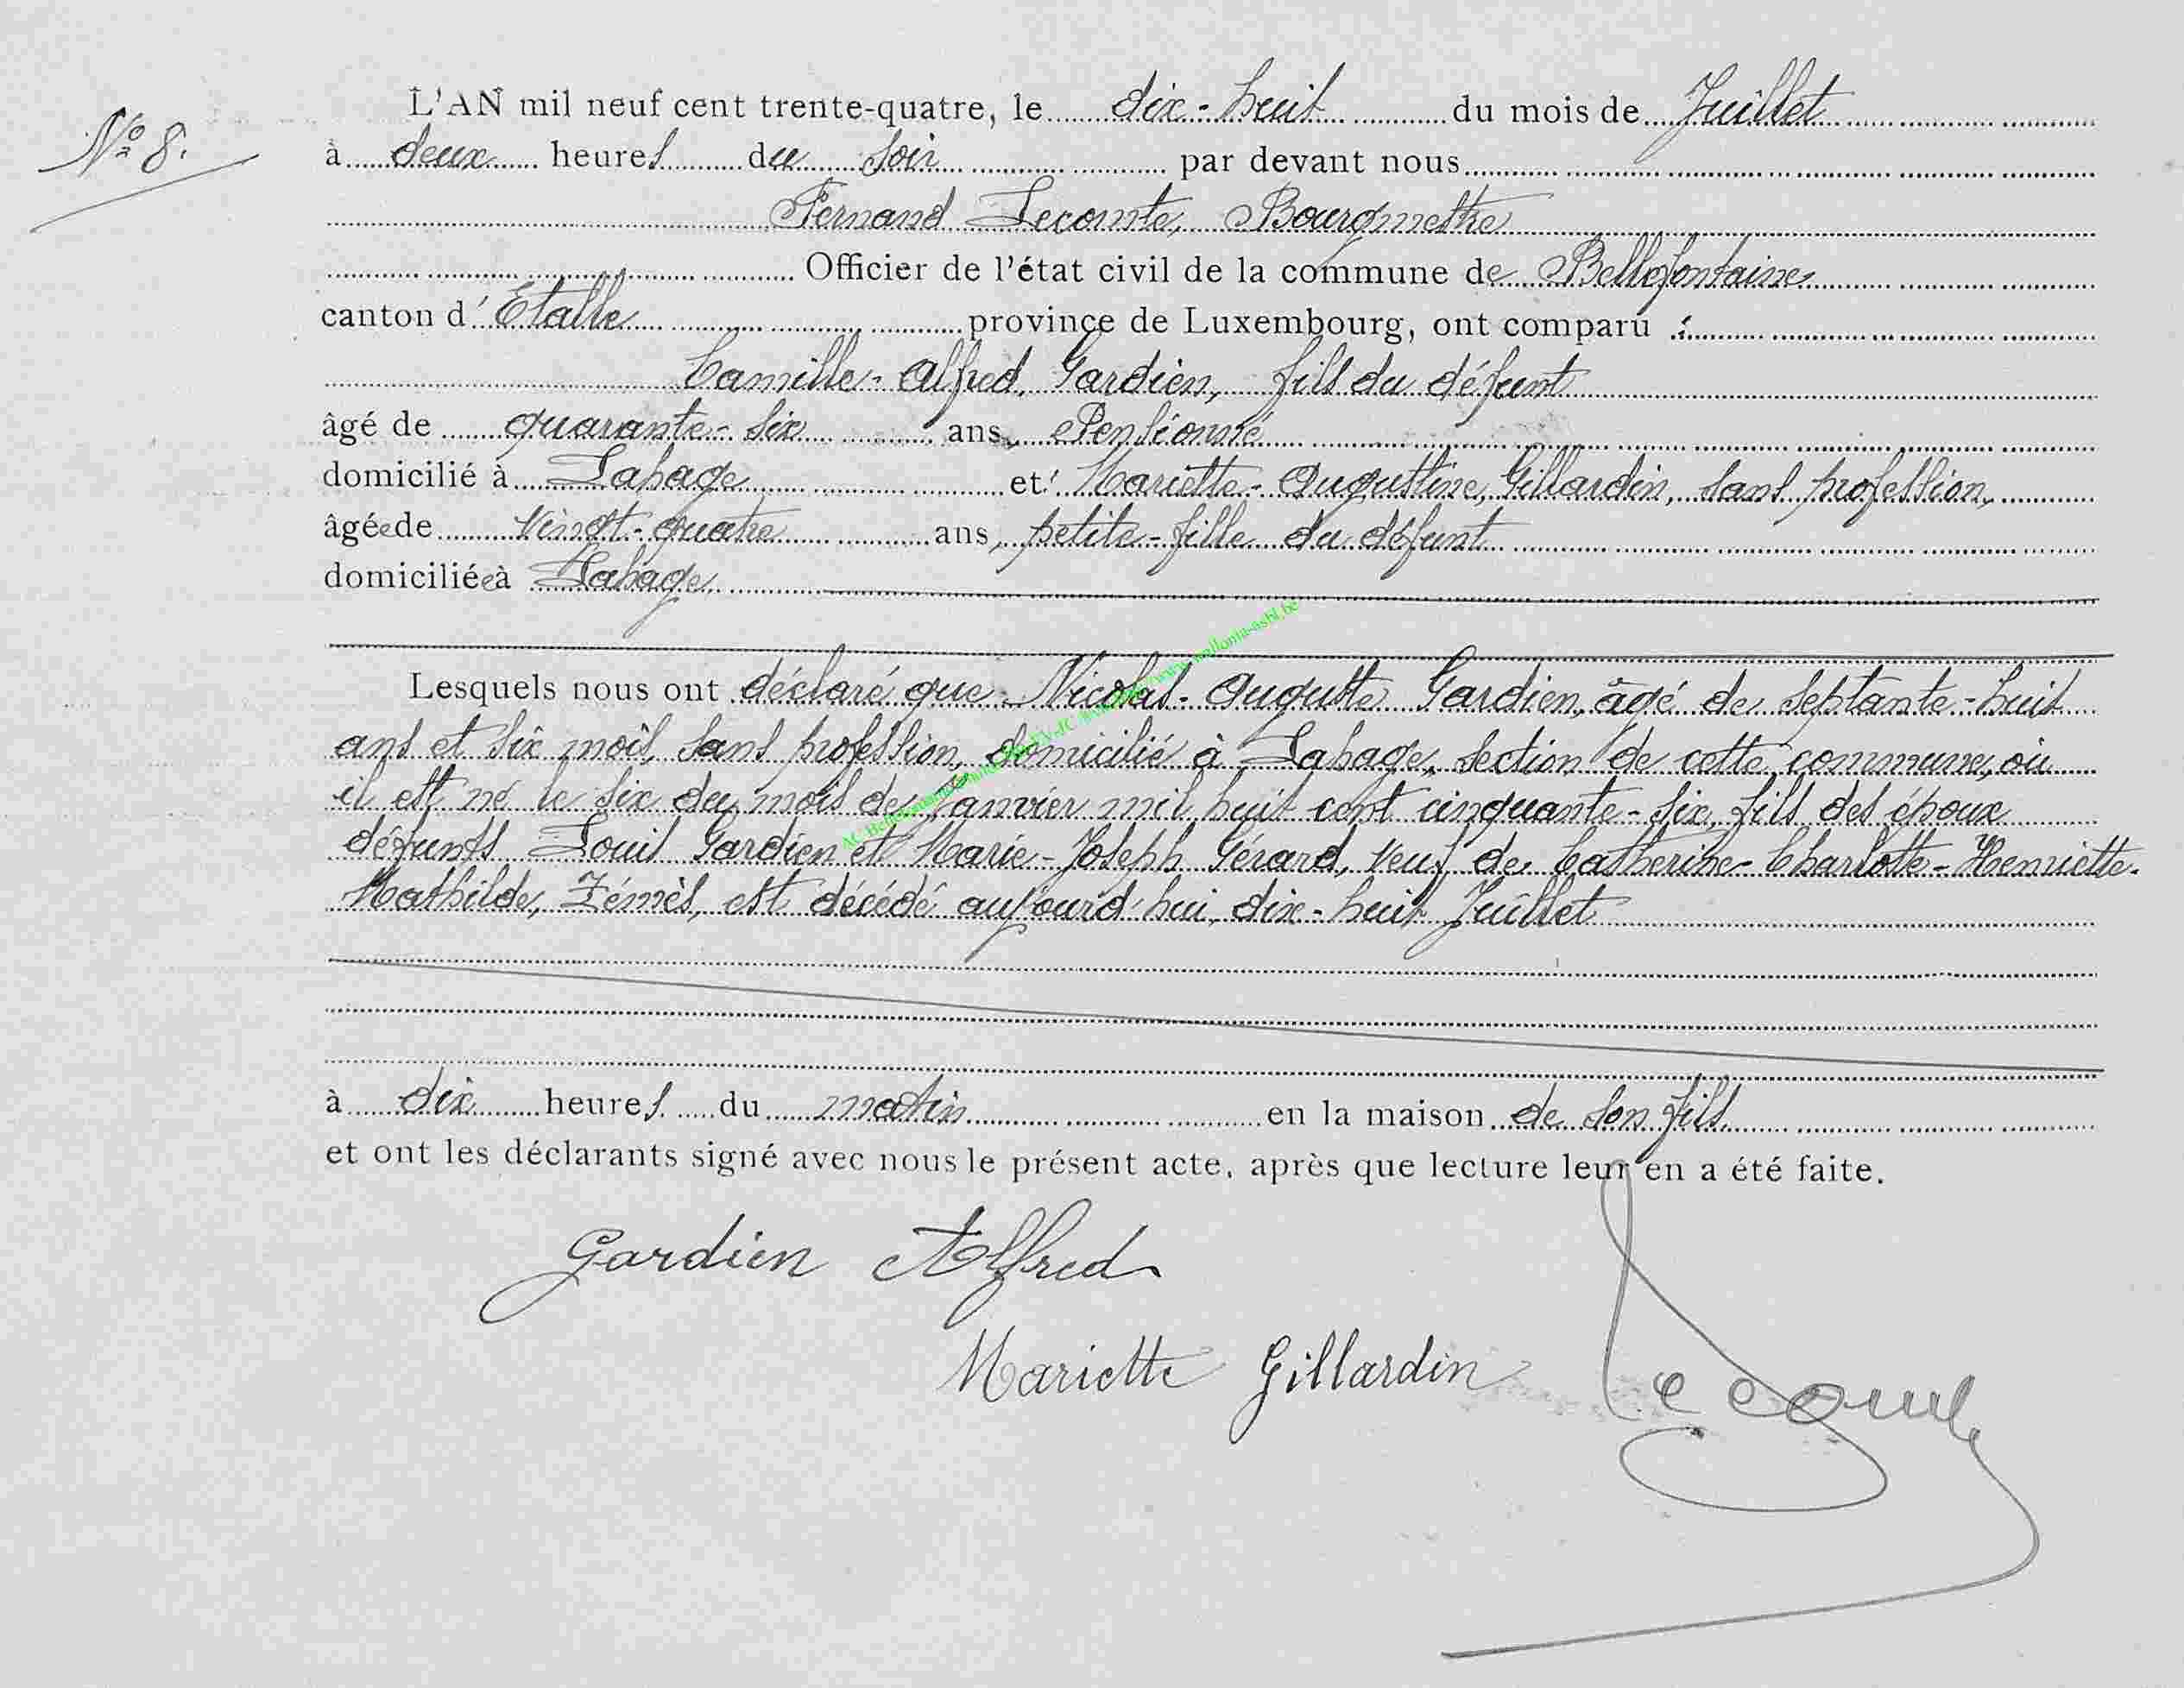 N° 8.
L'AN mil neuf cent trente-quatre, le dix-huit du mois de Juillet
à deux heures du soir par devant nous
Fernand Lecomte, Bourgmestre
Officier de l'état civil de la commune de Bellefontaine
canton d'Etalle province de Luxembourg, ont comparu :
Camille-Alfred, Gardien, fils du défunt
âgé de quarante-six ans, Pensionné
domicilié à Lahage et Mariette-Augustine, Gillardin, sans profession,
âgée de vingt-quatre ans, petite-fille du défunt
domiciliée à Lahage
Lesquels nous ont déclaré que Nicolas-Auguste Gardien, âgé de septante-huit
ans et six mois, sans profession, domicilié à Lahage, section de cette commune, où
il est né le six du mois de Janvier mil huit cent cinquante-six, fils des époux
défunts Louis Gardien et Marie-Joseph Gérard, veuf de Catherine-Charlotte-Henriette-
Mathilde, Zémès, est décédé aujourd'hui, dix-huit Juillet
à dix heures du matin en la maison de son fils
et ont les déclarants signé avec nous le présent acte, après que lecture leur en a été faite.
Gardien Alfred
Mariette Gillardin